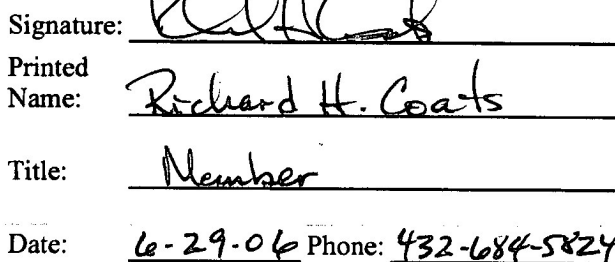 Signature:
Printed
Name: Richard H. Coats
Title: Member
Date: 6-29-06 Phone: 432-684-5824